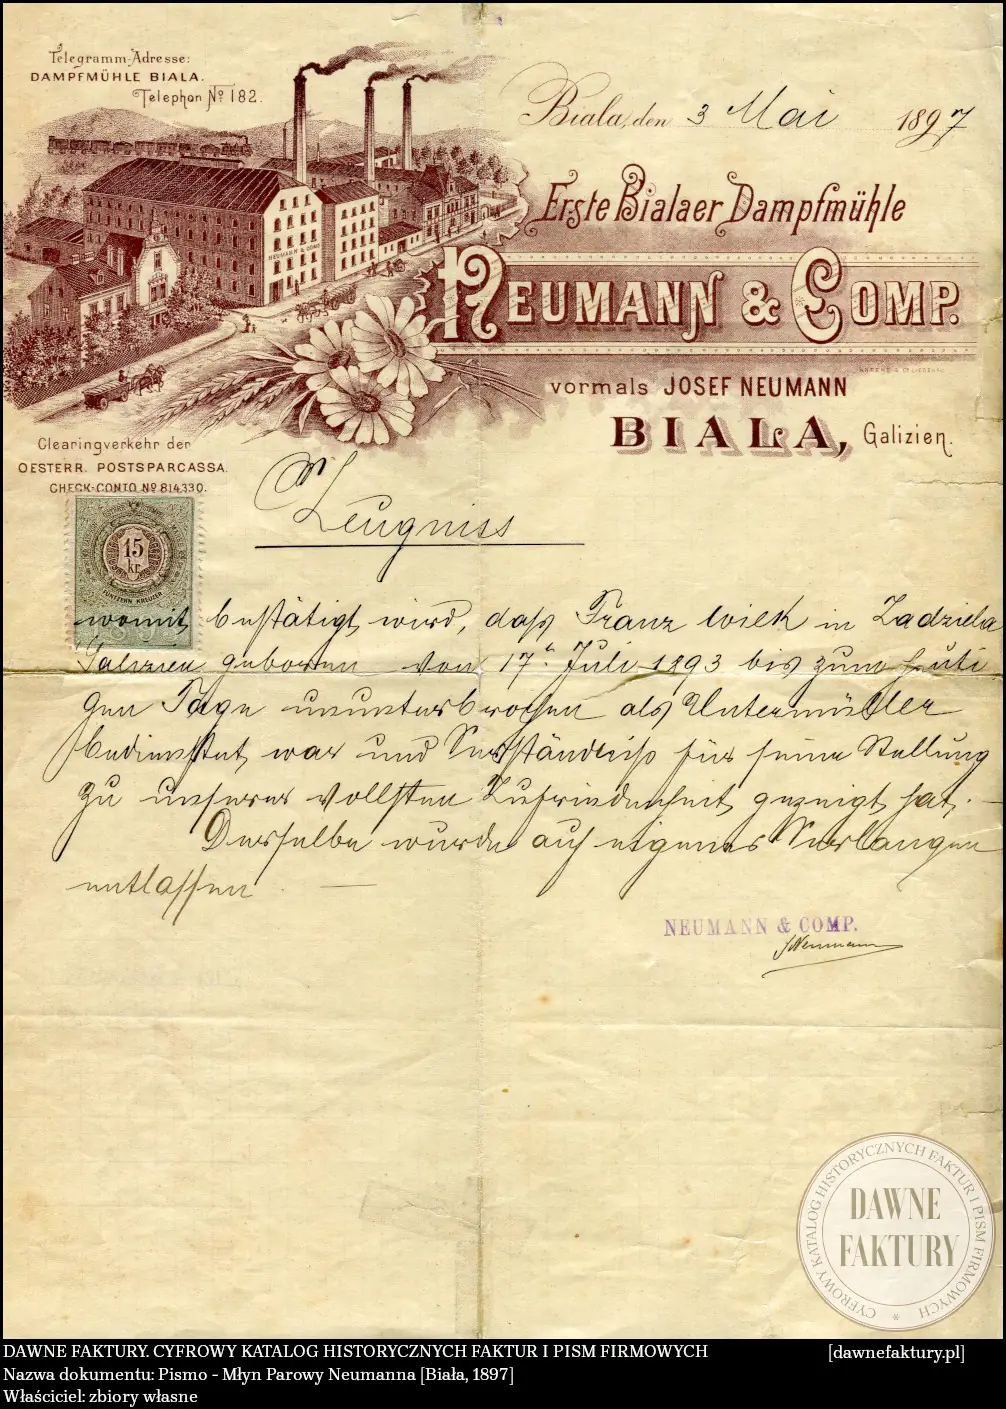 Telegramm-Adresse:
DAMPFMÜHLE BIALA.
Telephon № 182.
Biala, den 3 Mai 1897
Erste Bialaer Dampfmühle
NEUMANN & COMP.
NEUMANN & COMP.
vormals JOSEF NEUMANN
BIALA, Galizien.
Clearingverkehr der
OESTERR. POSTSPARCASSA.
CHECK-CONTO № 814.330.
Zeugniss
15
kr.
FÜNFZEHN KREUZER
womit bestätigt wird, dass Franz Wilk in Zadziela
Galizien geboren von 17. Juli 1893 bis zum heuti
gen Tage ununterbrochen als Untermüller
bedienstet war und Verständniss für seine Stellung
zu unserer vollsten Zufriedenheit gezeigt hat. —
Derselbe wurde auf eigenes Verlangen
entlassen. —
NEUMANN & COMP.
JNeumann
CYFROWY KATALOG HISTORYCZNYCH FAKTUR I PISM FIRMOWYCH *
DAWNE
FAKTURY
DAWNE FAKTURY. CYFROWY KATALOG HISTORYCZNYCH FAKTUR I PISM FIRMOWYCH [dawnefaktury.pl]
Nazwa dokumentu: Pismo - Młyn Parowy Neumanna [Biała, 1897]
Właściciel: zbiory własne